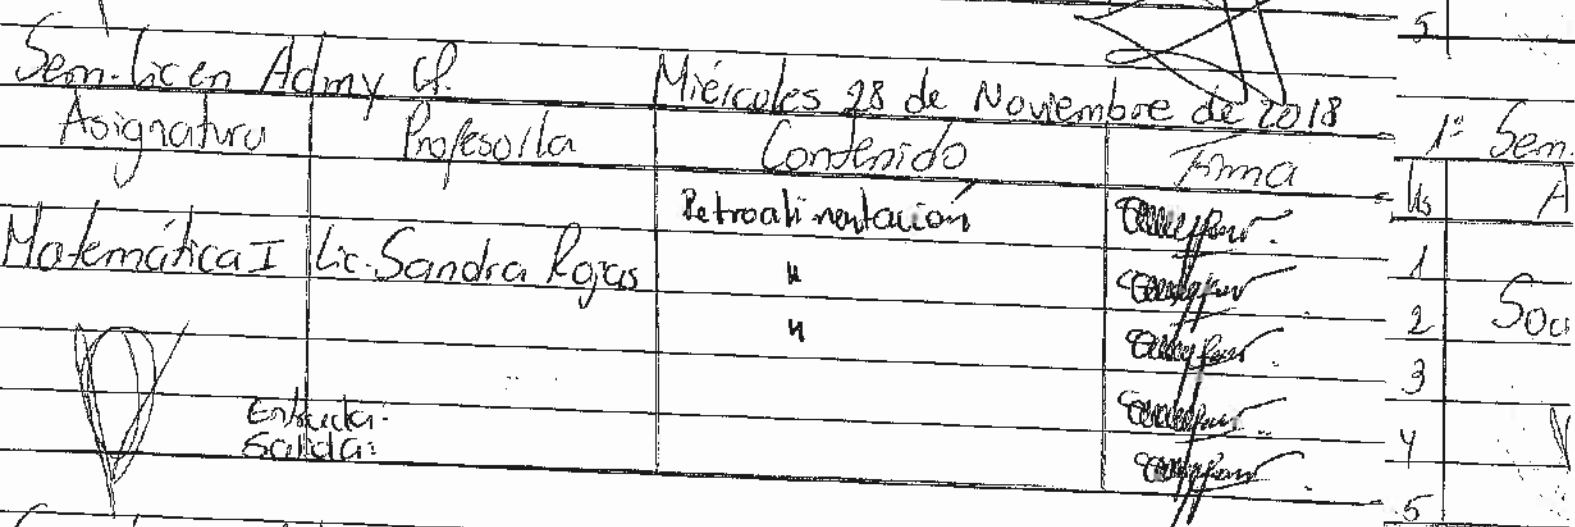 5
Sem. Lic en Adm y
Miércoles 28 de Noviembre de 2018
Asignatura Profesor/a Contenido Firma
Retroalimentación
Matemática I Lic. Sandra Rojas "
"
Entrada:
Salida:
1º Sem.
Hs A
1
2 Soci
3
4
5